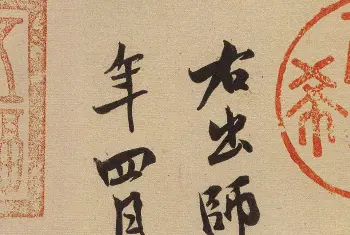 右出師
年四月